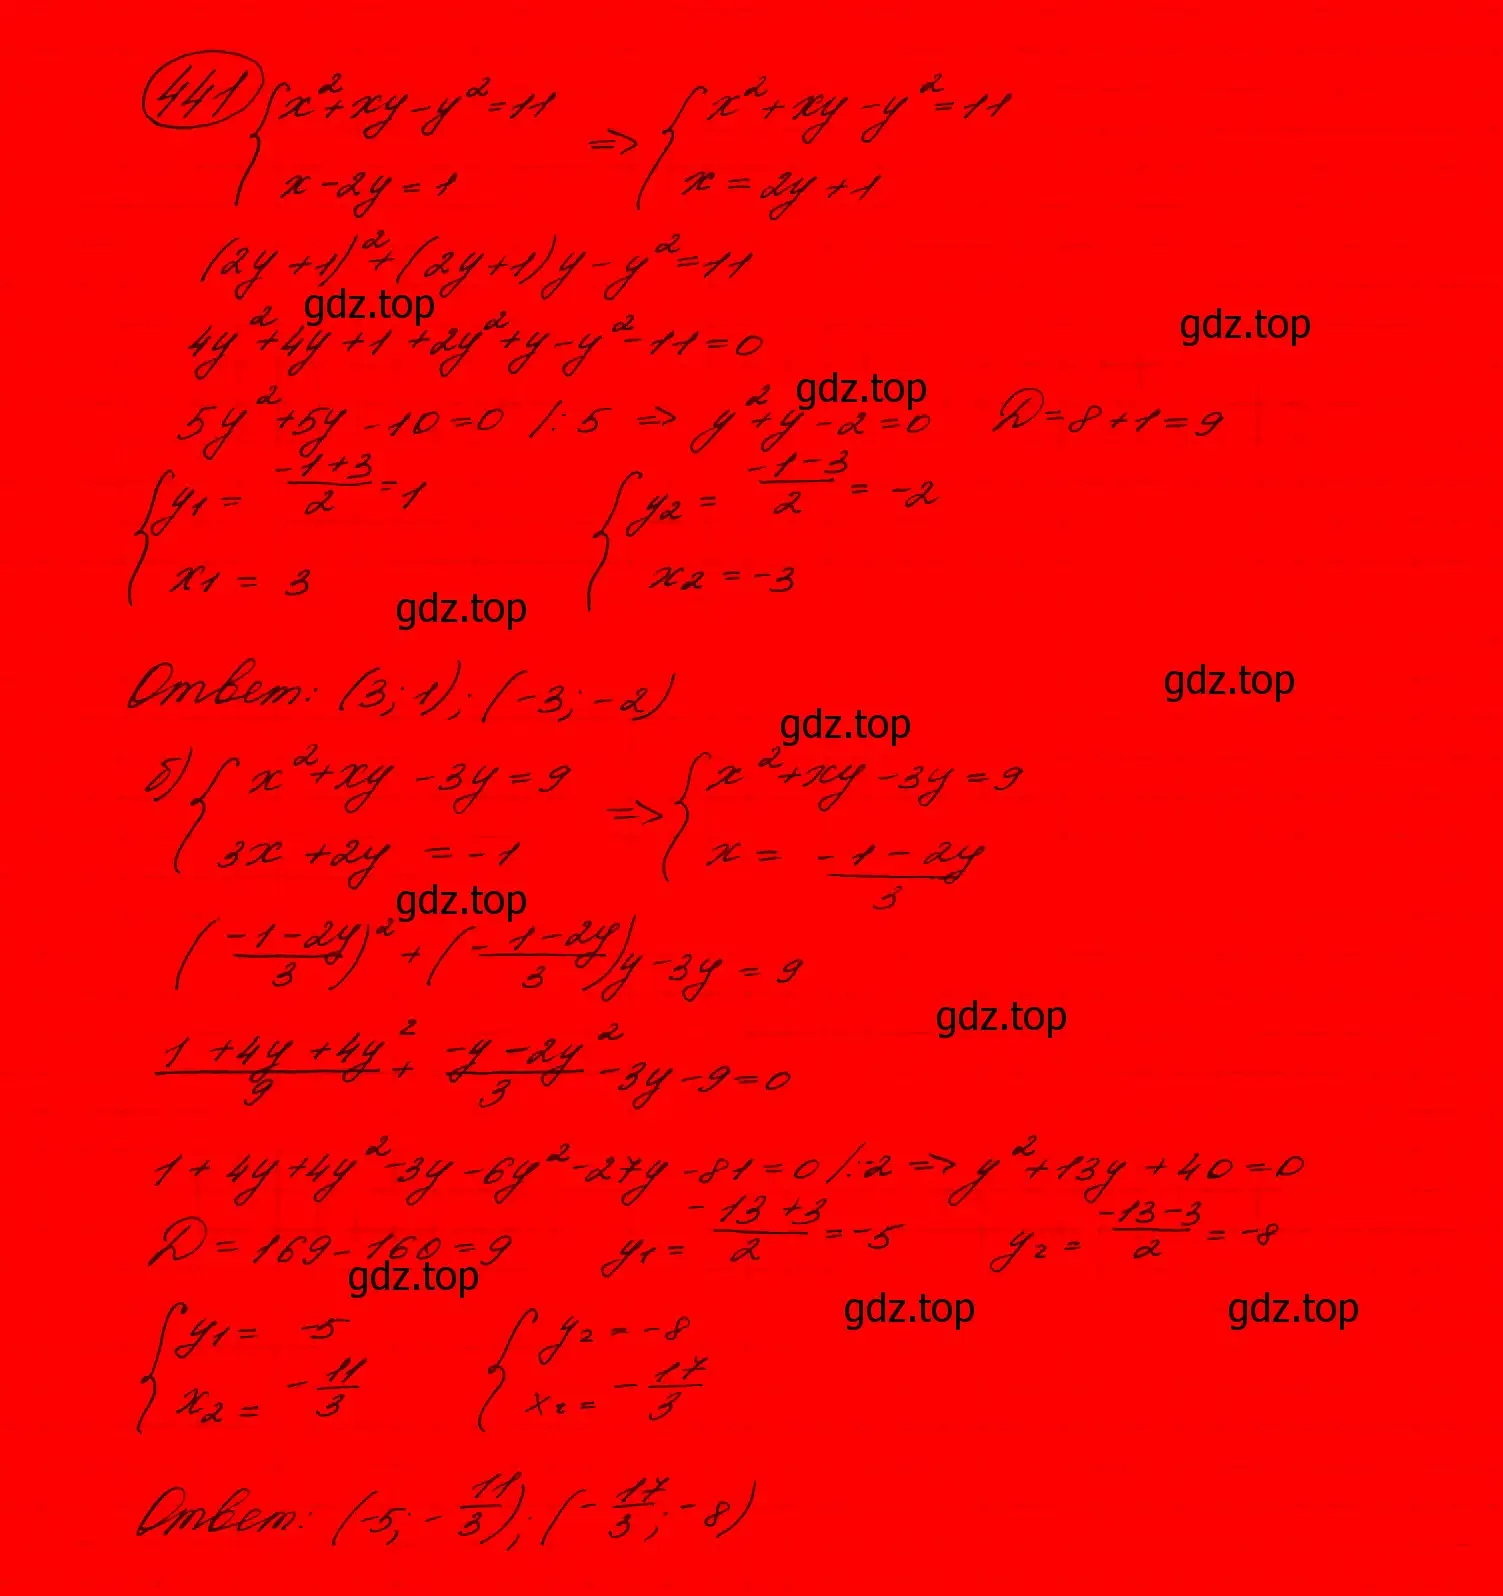 441 { x²+xy-y²=11 => { x²+xy-y²=11
x-2y=1 x=2y+1
(2y+1)²+(2y+1)y-y²=11
gdz.top
gdz.top
4y²+4y+1+2y²+y-y²-11=0
gdz.top
5y²+5y-10=0 /:5 => y²+y-2=0 D=8+1=9
{ y1= (-1+3)/2 =1 { y2= (-1-3)/2 = -2
x1= 3 x2=-3
gdz.top
Ответ: (3; 1); (-3; -2)
gdz.top
gdz.top
б) { x²+xy-3y=9 => { x²+xy-3y=9
3x+2y=-1 x= (-1-2y)/3
gdz.top
((-1-2y)/3)²+((-1-2y)/3)y-3y=9
gdz.top
(1+4y+4y²)/9 + (-y-2y²)/3 -3y-9=0
1+4y+4y²-3y-6y²-27y-81=0 /:-2 => y²+13y+40=0
D=169-160=9 y1= (-13+3)/2 =-5 y2= (-13-3)/2 = -8
gdz.top
gdz.top
gdz.top
{ y1= -5 { y2=-8
x2= -11/3 x2= -17/3
Ответ: (-5; -11/3); (-17/3; -8)